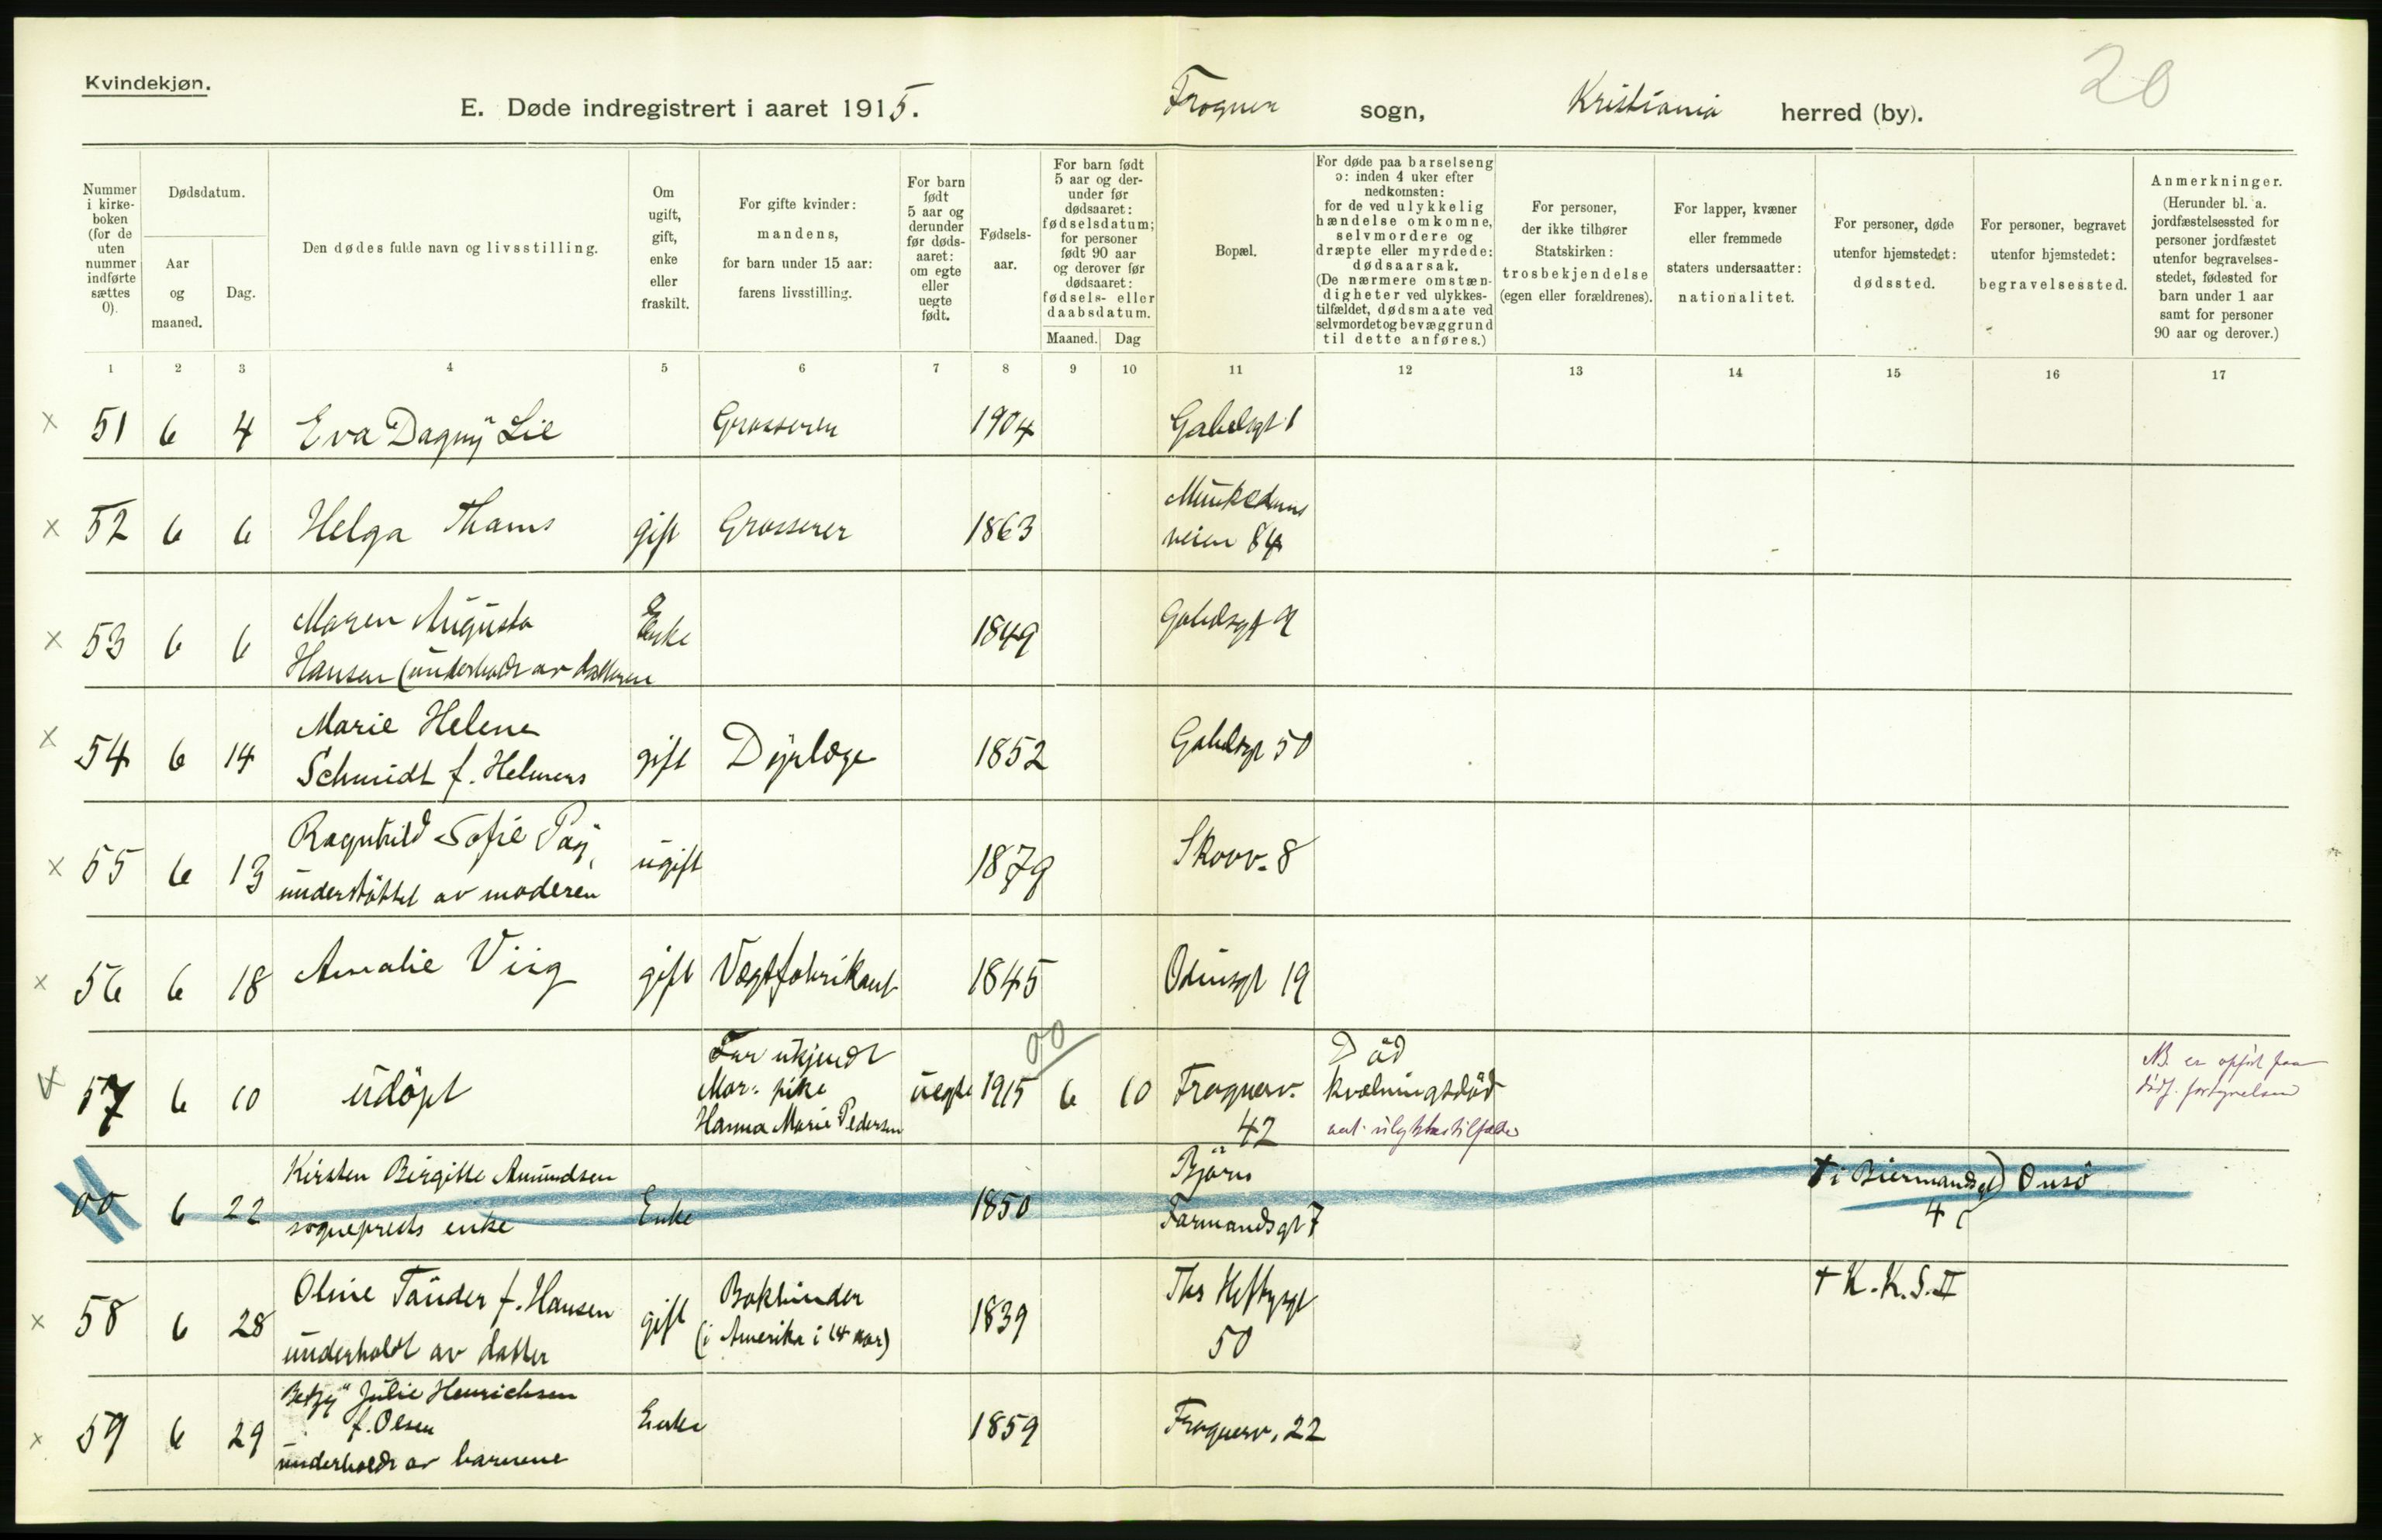 Kvindekjøn.
20
E. Døde indregistrert i aaret 1915. Frogner sogn, Kristiania herred (by).
Nummer i kirkeboken (for de uten nummer indførte sættes 0).
Dødsdatum.
Aar og maaned.
Dag.
Den dødes fulde navn og livsstilling.
Om ugift, gift, enke eller fraskilt.
For gifte kvinder: mandens, for barn under 15 aar: farens livsstilling.
For barn født 5 aar og derunder før dødsaaret: om egte eller uegte født.
Fødselsaar.
For barn født 5 aar og derunder før dødsaaret: fødselsdatum; for personer født 90 aar og derover før dødsaaret: fødsels- eller daabsdatum.
Maaned. Dag
Bopæl.
For døde paa barselseng ɔ: inden 4 uker efter nedkomsten: for de ved ulykkelig hændelse omkomne, selvmordere og dræpte eller myrdede: dødsaarsak. (De nærmere omstændigheter ved ulykkestilfældet, dødsmaate ved selvmordet og bevæggrund til dette anføres.)
For personer, der ikke tilhører Statskirken: trosbekjendelse (egen eller forældrenes).
For lapper, kvæner eller fremmede staters undersaatter: nationalitet.
For personer, døde utenfor hjemstedet: dødssted.
For personer, begravet utenfor hjemstedet: begravelsessted.
Anmerkninger. (Herunder bl. a. jordfæstelsessted for personer jordfæstet utenfor begravelsesstedet, fødested for barn under 1 aar samt for personer 90 aar og derover.)
1 2 3 4 5 6 7 8 9 10 11 12 13 14 15 16 17
x 51 6 4 Eva Dagny Lie Grosseren 1904 Gabelsgt 1
x 52 6 6 Helga Thams gift Grosserer 1863 Munkedams
veien 84
x 53 6 6 Maren Augusta Enke 1849 Gabelsgt 9
Hansen (underholdt av datteren
x 54 6 14 Marie Helene gift Dyrlæge 1852 Gabelsgt 50
Schmidt f. Helmers
x 55 6 13 Ragnhild Sofie Pay, ugift 1879 Skovv. 8
understöttet av moderen
x 56 6 18 Amalie Viig gift Vægtfabrikant 1845 Odinsgt 19
57 6 10 udöpt Far ukjendt
Mor: pike
Hanna Marie Pedersen uegte 1915 00 6 10 Frognerv.
42
Död
kvælningsdöd
ant. ulykkestilfælde
NB. er opfört paa
dödf. fortegnelsen
00 6 22 Kirsten Birgitte Amundsen
sogneprests enke Enke 1850 Björn
Farmandsgt 7
† i Biermandsgt) Onsö
4
x 58 6 28 Oline Tander f. Hansen
underholdt av datter gift Bokbinder
(i Amerika i 14 aar) 1839 Ths Heftysgt
50
† K.K.S. II
x 59 6 29 Betzy Julie Henrichsen
f. Olsen
underholdt av barnene Enke 1859 Frognerv. 22